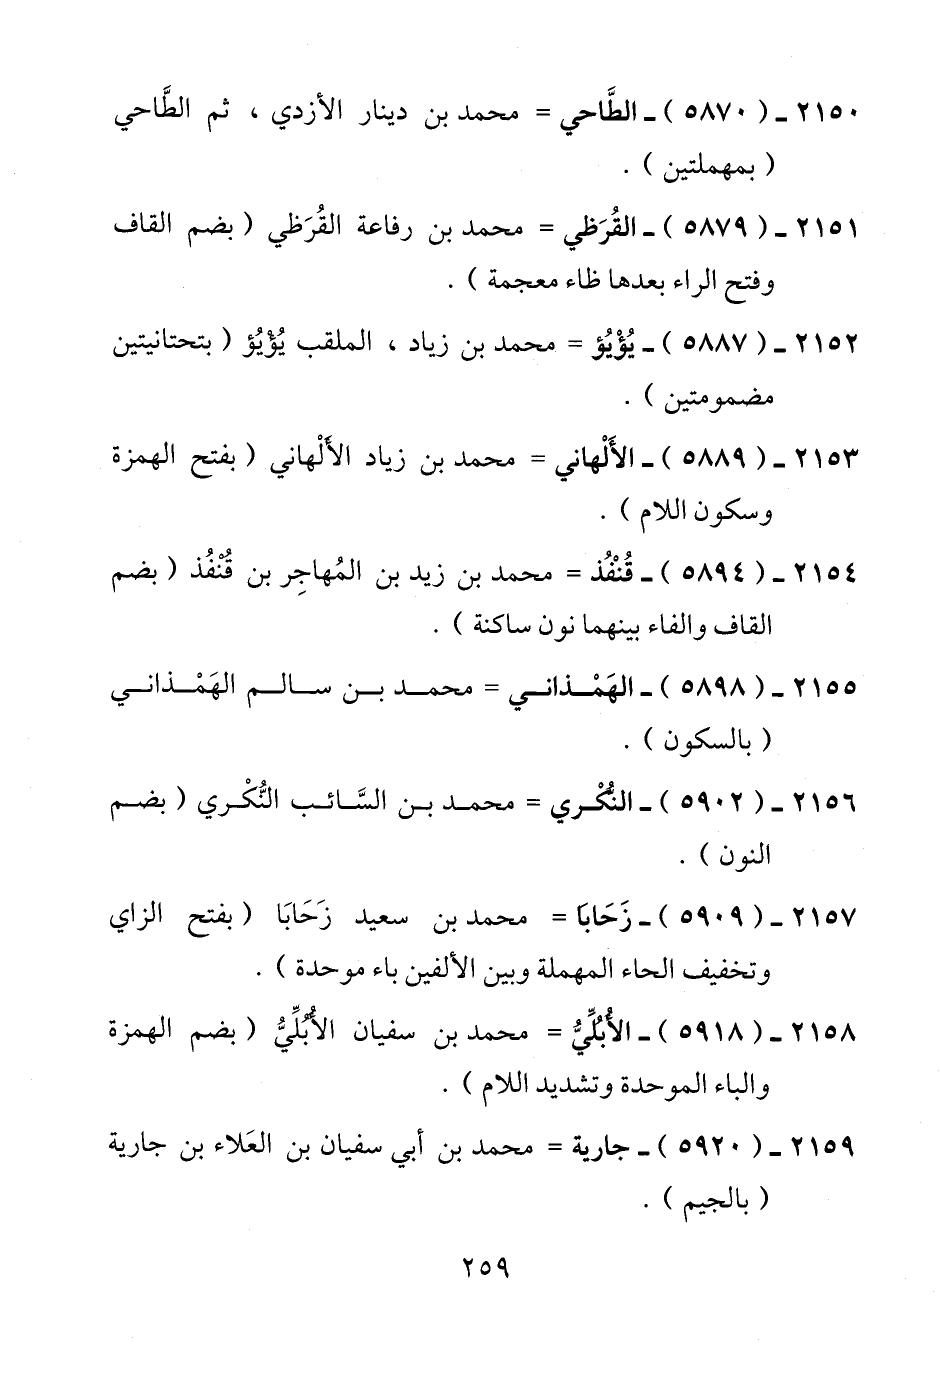 ٢١٥٠ ـ ( ٥٨٧٠ ) ـ الطَّاحي = محمد بن دينار الأزدي ، ثم الطَّاحي
( بمهملتين ) .
٢١٥١ ـ ( ٥٨٧٩ ) ـ القُرَظي = محمد بن رفاعة القُرَظي ( بضم القاف
وفتح الراء بعدها ظاء معجمة ) .
٢١٥٢ ـ ( ٥٨٨٧ ) ـ يُؤْيُؤ = محمد بن زياد ، الملقب يُؤْيُؤ ( بتحتانيتين
مضمومتين ) .
٢١٥٣ ـ ( ٥٨٨٩ ) ـ الأَلْهاني = محمد بن زياد الأَلْهاني ( بفتح الهمزة
وسكون اللام ) .
٢١٥٤ ـ ( ٥٨٩٤ ) ـ قُنْفُذ = محمد بن زيد بن المُهاجِر بن قُنْفُذ ( بضم
القاف والفاء بينهما نون ساكنة ) .
٢١٥٥ ـ ( ٥٨٩٨ ) ـ الهَمْـذانـي = محمـد بـن سـالـم الهَمْـذانـي
( بالسكون ) .
٢١٥٦ ـ ( ٥٩٠٢ ) ـ النُّكْـري = محمـد بـن السَّـائـب النُّكْـري ( بضـم
النون ) .
٢١٥٧ ـ ( ٥٩٠٩ ) ـ زَحَابَا = محمد بن سعيد زَحَابَا ( بفتح الزاي
وتخفيف الحاء المهملة وبين الألفين باء موحدة ) .
٢١٥٨ ـ ( ٥٩١٨ ) ـ الأُبُلِّيُّ = محمد بن سفيان الأُبُلِّيُّ ( بضم الهمزة
والباء الموحدة وتشديد اللام ) .
٢١٥٩ ـ ( ٥٩٢٠ ) ـ جارية = محمد بن أبي سفيان بن العَلاء بن جارية
( بالجيم ) .
٢٥٩